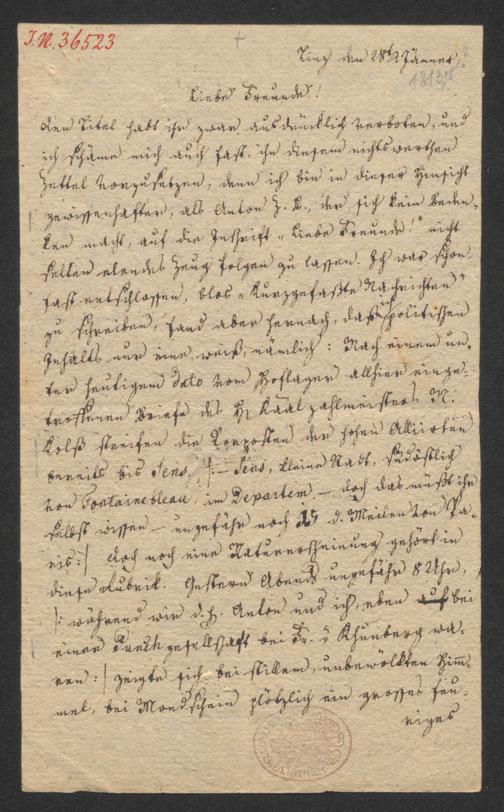 J. N. 36523
Linz den 28ᵗ Jänner
Liebe Freunde!
den Titel habt ihr zwar ausdrücklich verboten, und
ich schäme mich auch fast, ihn diesem nichtswerthen
Zettel vorzusetzen, denn ich bin in dieser Hinsicht
gewissenhafter, als Anton z. B., der sich kein Beden-
ken macht, auf die Inschrift „Liebe Freunde!" nicht
selten elendes Zeug folgen zu lassen. Ich war schon
fast entschlossen, blos „Kurzgefaßte Nachrichten"
zu schreiben, fand aber hernach, daß ich politischen
Inhalts nur eine weiß, nämlich: Nach einem un-
ter heutigem dato vom Hoflager allhier einge-
troffenen Briefe des H. Kaal zahlmeisters
Kolß streifen die Vorposten der hohen Alliirten
bereits bis Sens, /:– Sens, kleine Stadt, südöstlich
von Fontainebleau, im Departem. – doch das müßt ihr
selbst wissen – ungefähr noch 15 d. Meilen von Pa-
ris:/ Auch noch eine Naturerscheinung gehört in
diese Rubrik. Gestern Abends ungefähr 8 Uhr,
/: während wir d. h. Anton und ich, eben bei
einer gesellschaft bei Fr. v Khünberg wa-
ren:/ zeigte sich bei stillem, unbewölkten Him-
mel, bei Mondschein plötzlich ein grosses feu-
riges